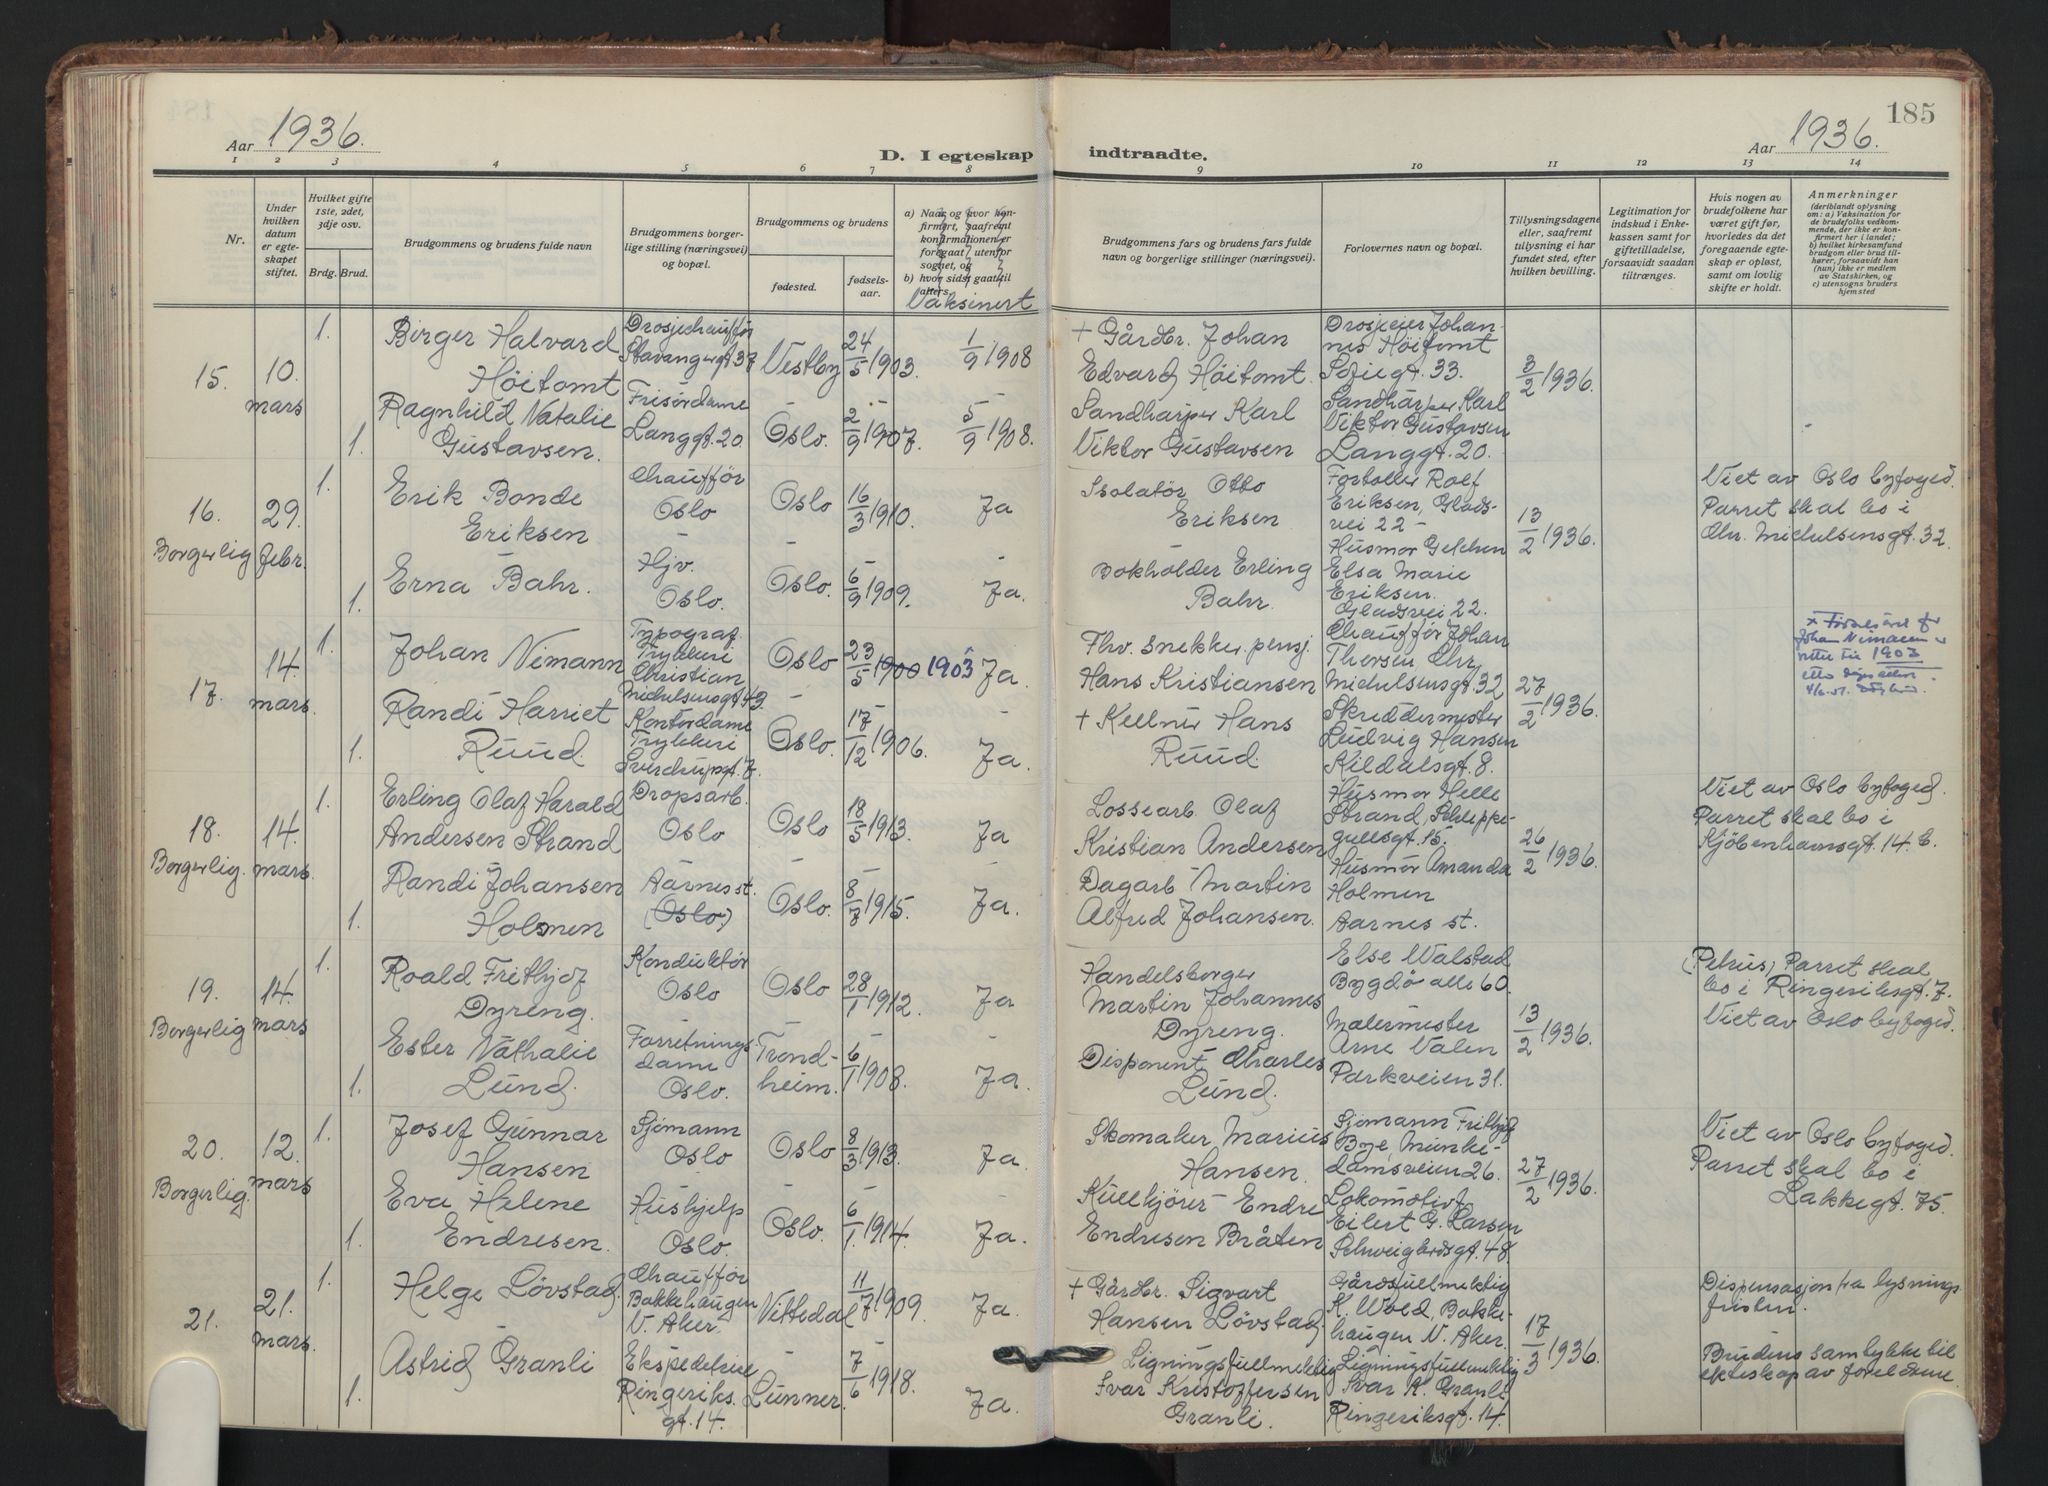 185
Aar 1936.
D. I egteskap indtraadte.
Aar 1936.
1 2 3 4 5 6 7 8 9 10 11 12 13 14
Nr.
Under hvilken datum er egteskapet stiftet.
Hvilket gifte 1ste, 2det, 3dje osv.
Brdg. Brud.
Brudgommens og brudens fulde navn
Brudgommens borgerlige stilling (næringsvei) og bopæl.
Brudgommens og brudens
fødested.
fødselsaar.
a) Naar og hvor konfirmert, saafremt konfirmationen er foregaat utenfor sognet, og
b) hvor sidst gaat til alters.
Vaksinert
Brudgommens fars og brudens fars fulde navn og borgerlige stillinger (næringsvei).
Forlovernes navn og bopæl.
Tillysningsdagene eller, saafremt tillysning ei har fundet sted, efter hvilken bevilling.
Legitimation for indskud i Enkekassen samt for giftetilladelse, forsaavidt saadan tiltrænges.
Hvis nogen av brudefolkene har været gift før, hvorledes da det foregaaende egteskap er opløst, samt om lovlig skifte er holdt.
Anmerkninger
(deriblandt oplysning om: a) Vaksination for de brudefolks vedkommende, der ikke er konfirmert her i landet; b) hvilket kirkesamfund brudgom eller brud tilhører, forsaavidt han (hun) ikke er medlem av Statskirken, og c) utensogns bruders hjemsted
15.
10. mars
1.
Birger Halvard
Höitomt
Drosjechauffør
Stavangergt. 37
Vestby
24/5 1903.
1/9 1908
+ Gårdbr. Johan
Edvard Höitomt.
Drosjeeier Johan-
nes Höitomt
Sofiegt. 33.
3/2 1936.
1.
Ragnhild Natalie
Gustavsen.
Frisørdame
Langgt. 20
Oslo.
2/9 1907.
5/9 1908.
Sandharper Karl
Viktor Gustavsen
Sandharper Karl
Viktor Gustavsen
Langgt. 20.
16.
Borgerlig
29. febr.
1.
Erik Bonde
Eriksen
Chauffør
Oslo
Oslo
16/3 1910.
Ja
Isolatör Otto
Eriksen
Fortoller Rolf
Eriksen, Glads-
vei 22 -
13/2 1936.
Viet av Oslo byfoged.
Parret skal bo i
Chr. Michelsensgt. 32.
1.
Erna Bahr.
Hjv.
Oslo.
Oslo.
6/9 1909.
Ja.
Bokholder Erling
Bahr.
Husmor
Elsa Marie
Eriksen.
Gladsvei 22.
17.
14. mars
1.
Johan Nimann
Typograf
Trykkeri
Christian
Michelsensgt. 43
Oslo
23/5 1900 1903
Ja.
Fhv. snekker, pensj.
Hans Kristiansen
Chauffør Johan
Thorsen Chr.
Michelsensgt. 32
27/2 1936.
Johan Nimann
rettet til 1903
1.
Randi Harriet
Ruud.
Kontordame
Trykkeri
Sverdrupsgt. 7.
Oslo.
17/12 1906.
Ja.
+ Kellner Hans
Ruud.
Skreddermester
Ludvig Hansen
Kildalsgt. 8.
18.
Borgerlig.
14. mars.
1.
Erling Olaf Harald
Andersen Strand
Dropsarb.
Oslo
Oslo
18/5 1913.
Ja
Lossearb. Olaf
Kristian Andersen
Husmor Helle
Strand, Schleppe-
grellsgt. 15.
26/2 1936.
Viet av Oslo byfoged.
Parret skal bo i
Kjöbenhavnsgt. 14. b.
1.
Randi Johansen
Holmen
Aarnes st.
(Oslo)
Oslo.
8/7 1915.
Ja.
Dagarb. Martin
Alfred Johansen.
Husmor Amanda
Holmen
Aarnes st.
19.
Borgerlig
14. mars
1.
Roald Frithjof
Dyreng.
Konduktør
Oslo
Oslo
28/1 1912.
Ja
Handelsborger
Martin Johannes
Dyreng.
Else Walstad
Bygdö alle 60.
13/2 1936.
(Petrus) Parret skal
bo i Ringeriksgt. 7.
Viet av Oslo byfoged.
1.
Ester Nathalie
Lund.
Forretnings-
dame
Oslo.
Trond-
heim.
6/1 1908.
Ja.
Disponent Charles
Lund.
Malermester
Arne Valen
Parkveien 31.
20.
Borgerlig.
12. mars
1.
Josef Gunnar
Hansen
Sjömann
Oslo
Oslo
8/3 1913.
Ja.
Skomaker Marius
Hansen.
Sjömann Frithjof
Bye, Munke-
damsveien 26.
27/2 1936.
Viet av Oslo byfoged.
Parret skal bo i
Lakkegt. 75.
1.
Eva Helene
Endresen.
Hushjelp
Oslo.
Oslo.
6/1. 1914.
Ja.
Kullkjörer Endre
Endresen Bråten
Lokomotivf.
Eilert G. Larsen
Schweigårdsgt. 48.
21.
21. mars.
1.
Helge Lövstad.
Chauffør
Bakkehaugen
V. Aker.
Nittedal
11/7 1909.
Ja.
+ Gårdbr. Sigvart
Hansen Lövstad.
Gårdsfullmektig
K. Wold, Bakke-
haugen V. Aker.
17/3 1936.
Dispensasjon fra lysnings-
fristen.
1.
Astrid Granli
Ekspeditrise
Ringeriks-
gt. 14.
Lunner.
7/6 1918.
Ja.
Ligningsfullmektig
Ivar Kristoffersen
Granli.
Ligningsfullmektig
Ivar K. Granli
Ringeriksgt. 14.
Brudens samtykke til
ekteskap av foreldrene.